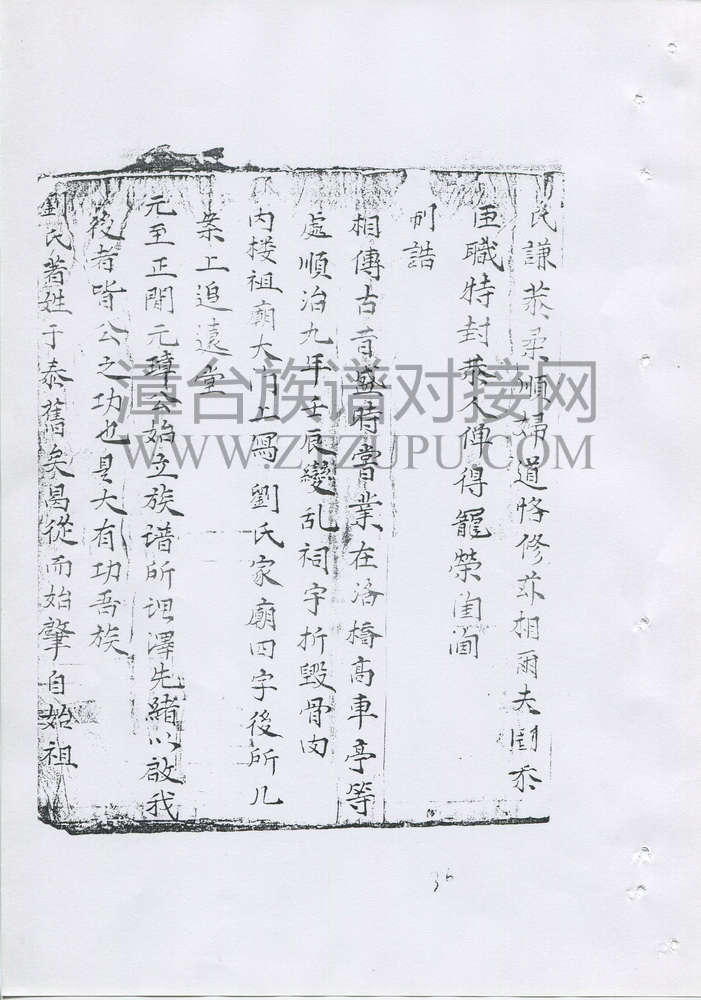 氏謙恭柔順婦道恪修玆相爾夫國忝
匡職特封恭人俾得寵榮閨閫
制誥
相傳古昔盛時嘗業在洛橋高車亭等
處順治九年壬辰變乱祠宇折毀骨肉
内楼祖廟大门上寫劉氏家廟四字後所几
案上追遠堂
元至正間元璋公始立族谱所詔澤先緒以啟我
後者皆公之功也是大有功吾族
劉氏著姓于泰舊矣曷從而始肇自始祖
漳台族谱对接网
WWW.ZTZUPU.COM
36